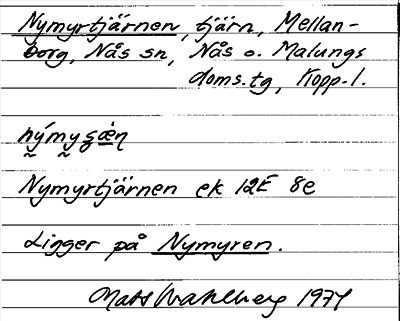 Nymyrtjärnen, tjärn, Mellan-
borg, Nås sn, Nås o. Malungs
doms.tg, Kopp. l.
Nymyrtjärnen ek 12E 8e
Ligger på Nymyren.
Mats Wahlberg 1974